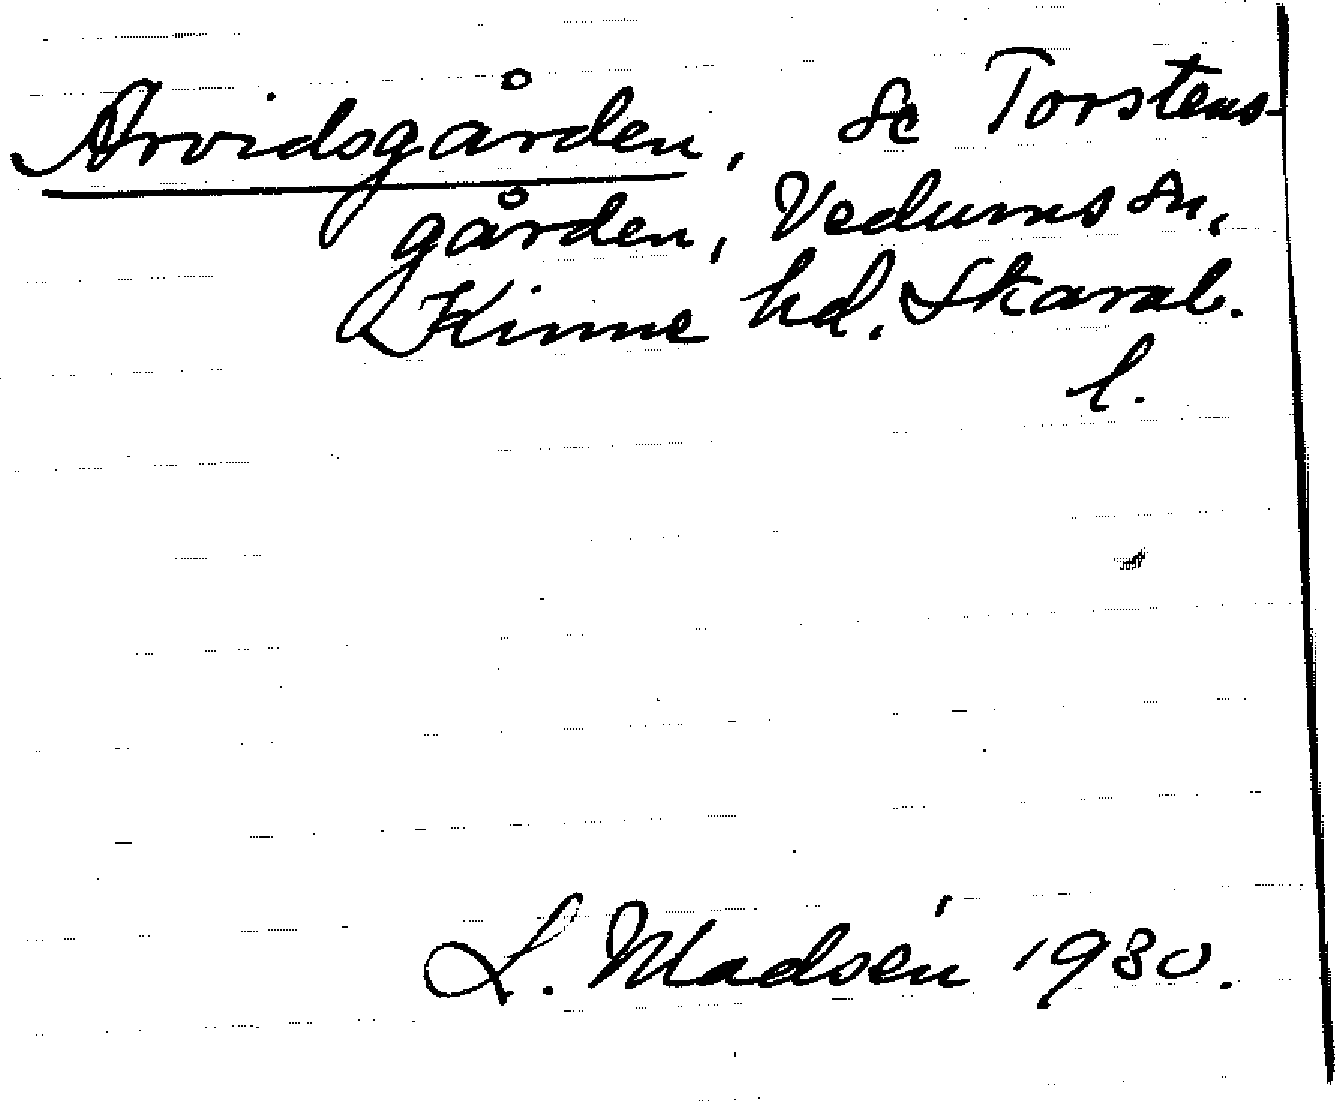 Arvidsgården, se Torstens-
gården, Vedums sn,
Kinne hd. Skarab.
l.
L. Madsén 1930.